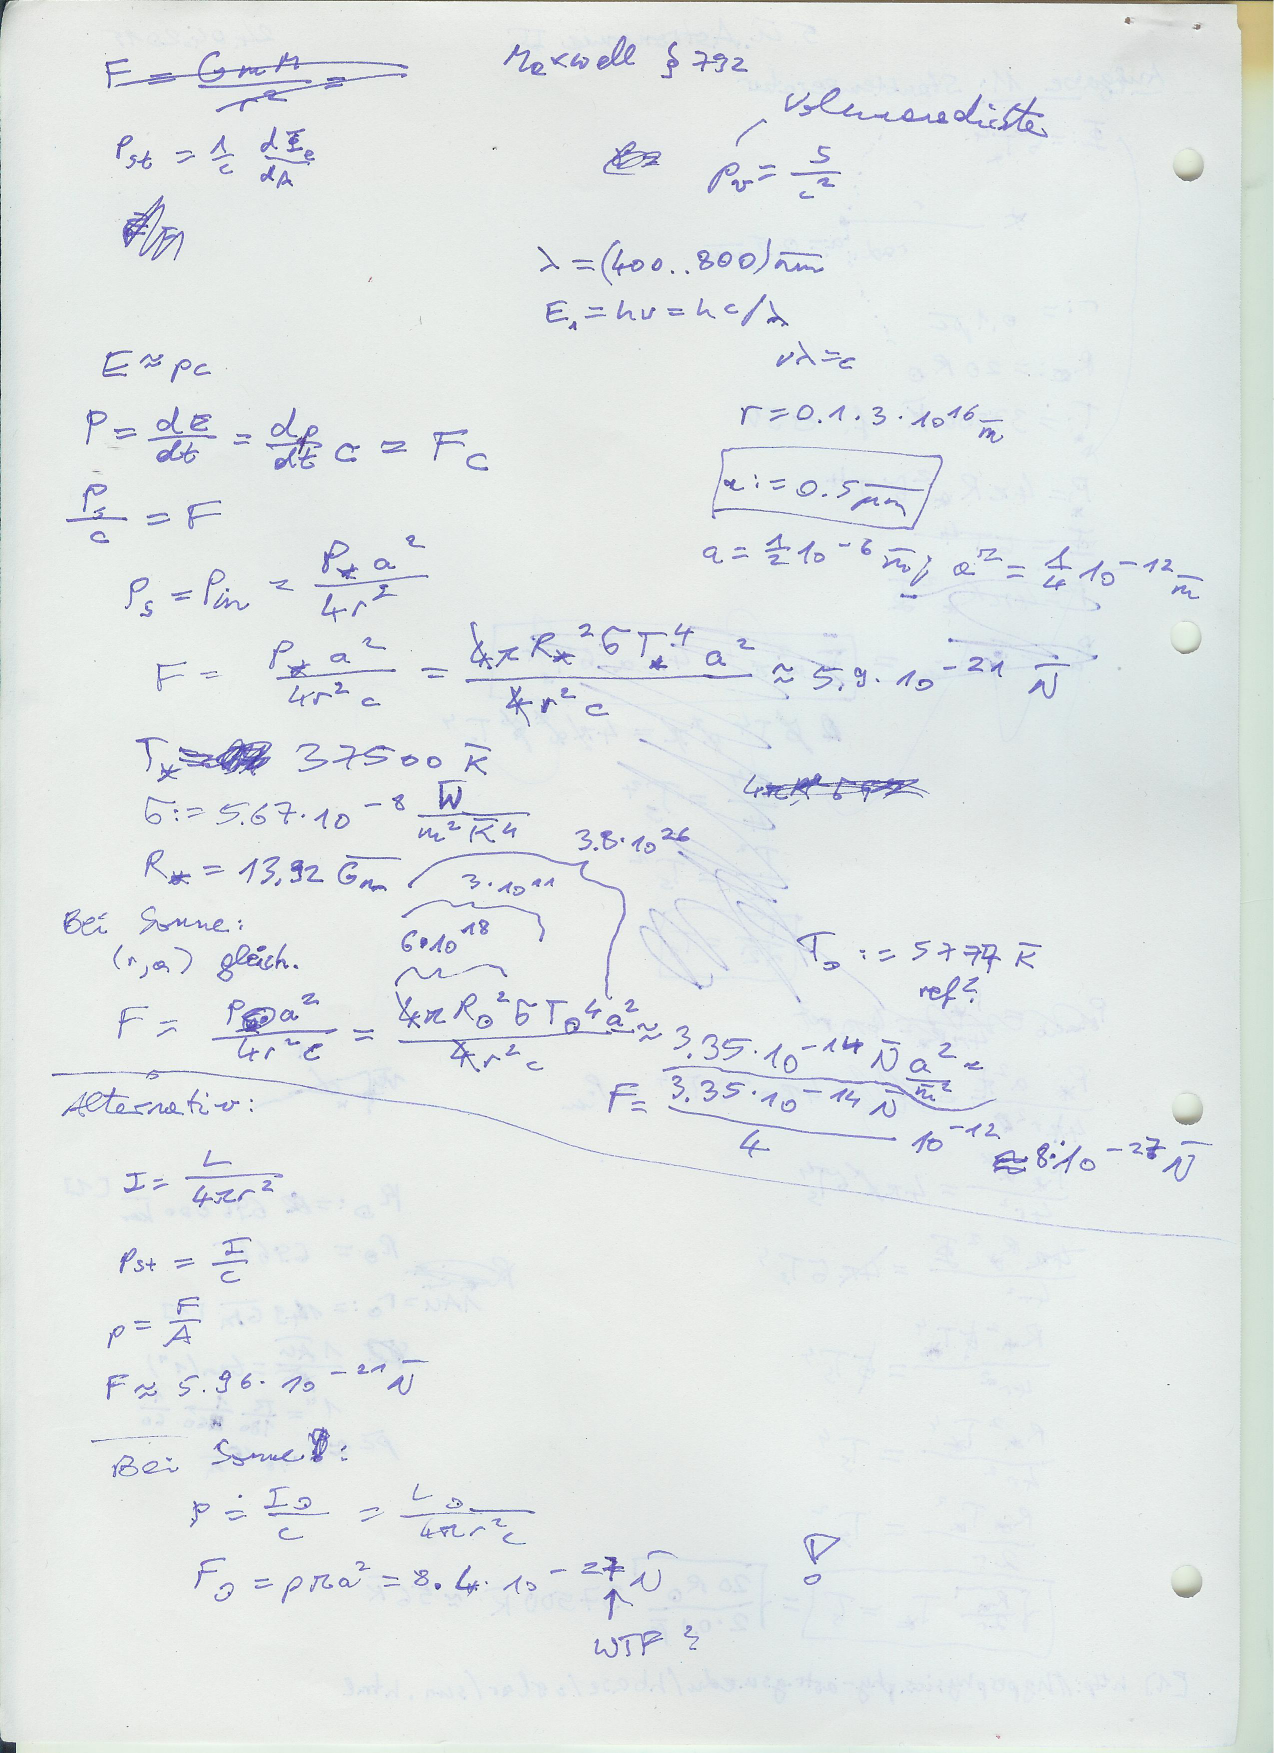 F = GmM / r² =
Maxwell § 792
Volumendichte
P_st = 1/c dΦ_e/dA
p_v = S/c²
λ = (400..800) nm
E₁ = hν = hc/λ
νλ = c
E ≈ pc
P = dE/dt = dp/dt c = Fc
r = 0.1 · 3 · 10¹⁶ m
P_s/c = F
a := 0.5 μm
a = 1/2 10⁻⁶ m; a² = 1/4 10⁻¹² m
P_s = P_in = P_* a² / 4r²
F = P_* a² / 4r²c = 4π R_*² σ T_*⁴ a² / 4r²c ≈ 5.9 · 10⁻²¹ N
T_* = 37500 K
σ := 5.67 · 10⁻⁸ W / m² K⁴
4πR²σ
R_* = 13.92 Gm
3.8 · 10²⁶
3 · 10¹¹
6 · 10¹⁸
Bei Sonne:
(r, a) gleich.
T_⊙ := 5777 K
ref?
F = P_⊙ a² / 4r²c = 4π R_⊙² σ T_⊙⁴ a² / 4r²c ≈ 3.35 · 10⁻¹⁴ N a²/m² =
F = 3.35 · 10⁻¹⁴ N / 4 10⁻¹² ≈ 8 · 10⁻²⁷ N
Alternativ:
I = L / 4πr²
P_st = I/c
p = F/A
F ≈ 5.96 · 10⁻²¹ N
Bei Sonne:
p = I_⊙/c = L_⊙ / 4πr²c
F_⊙ = pπa² = 8.4 · 10⁻²⁷ N
!
↑
WTF?